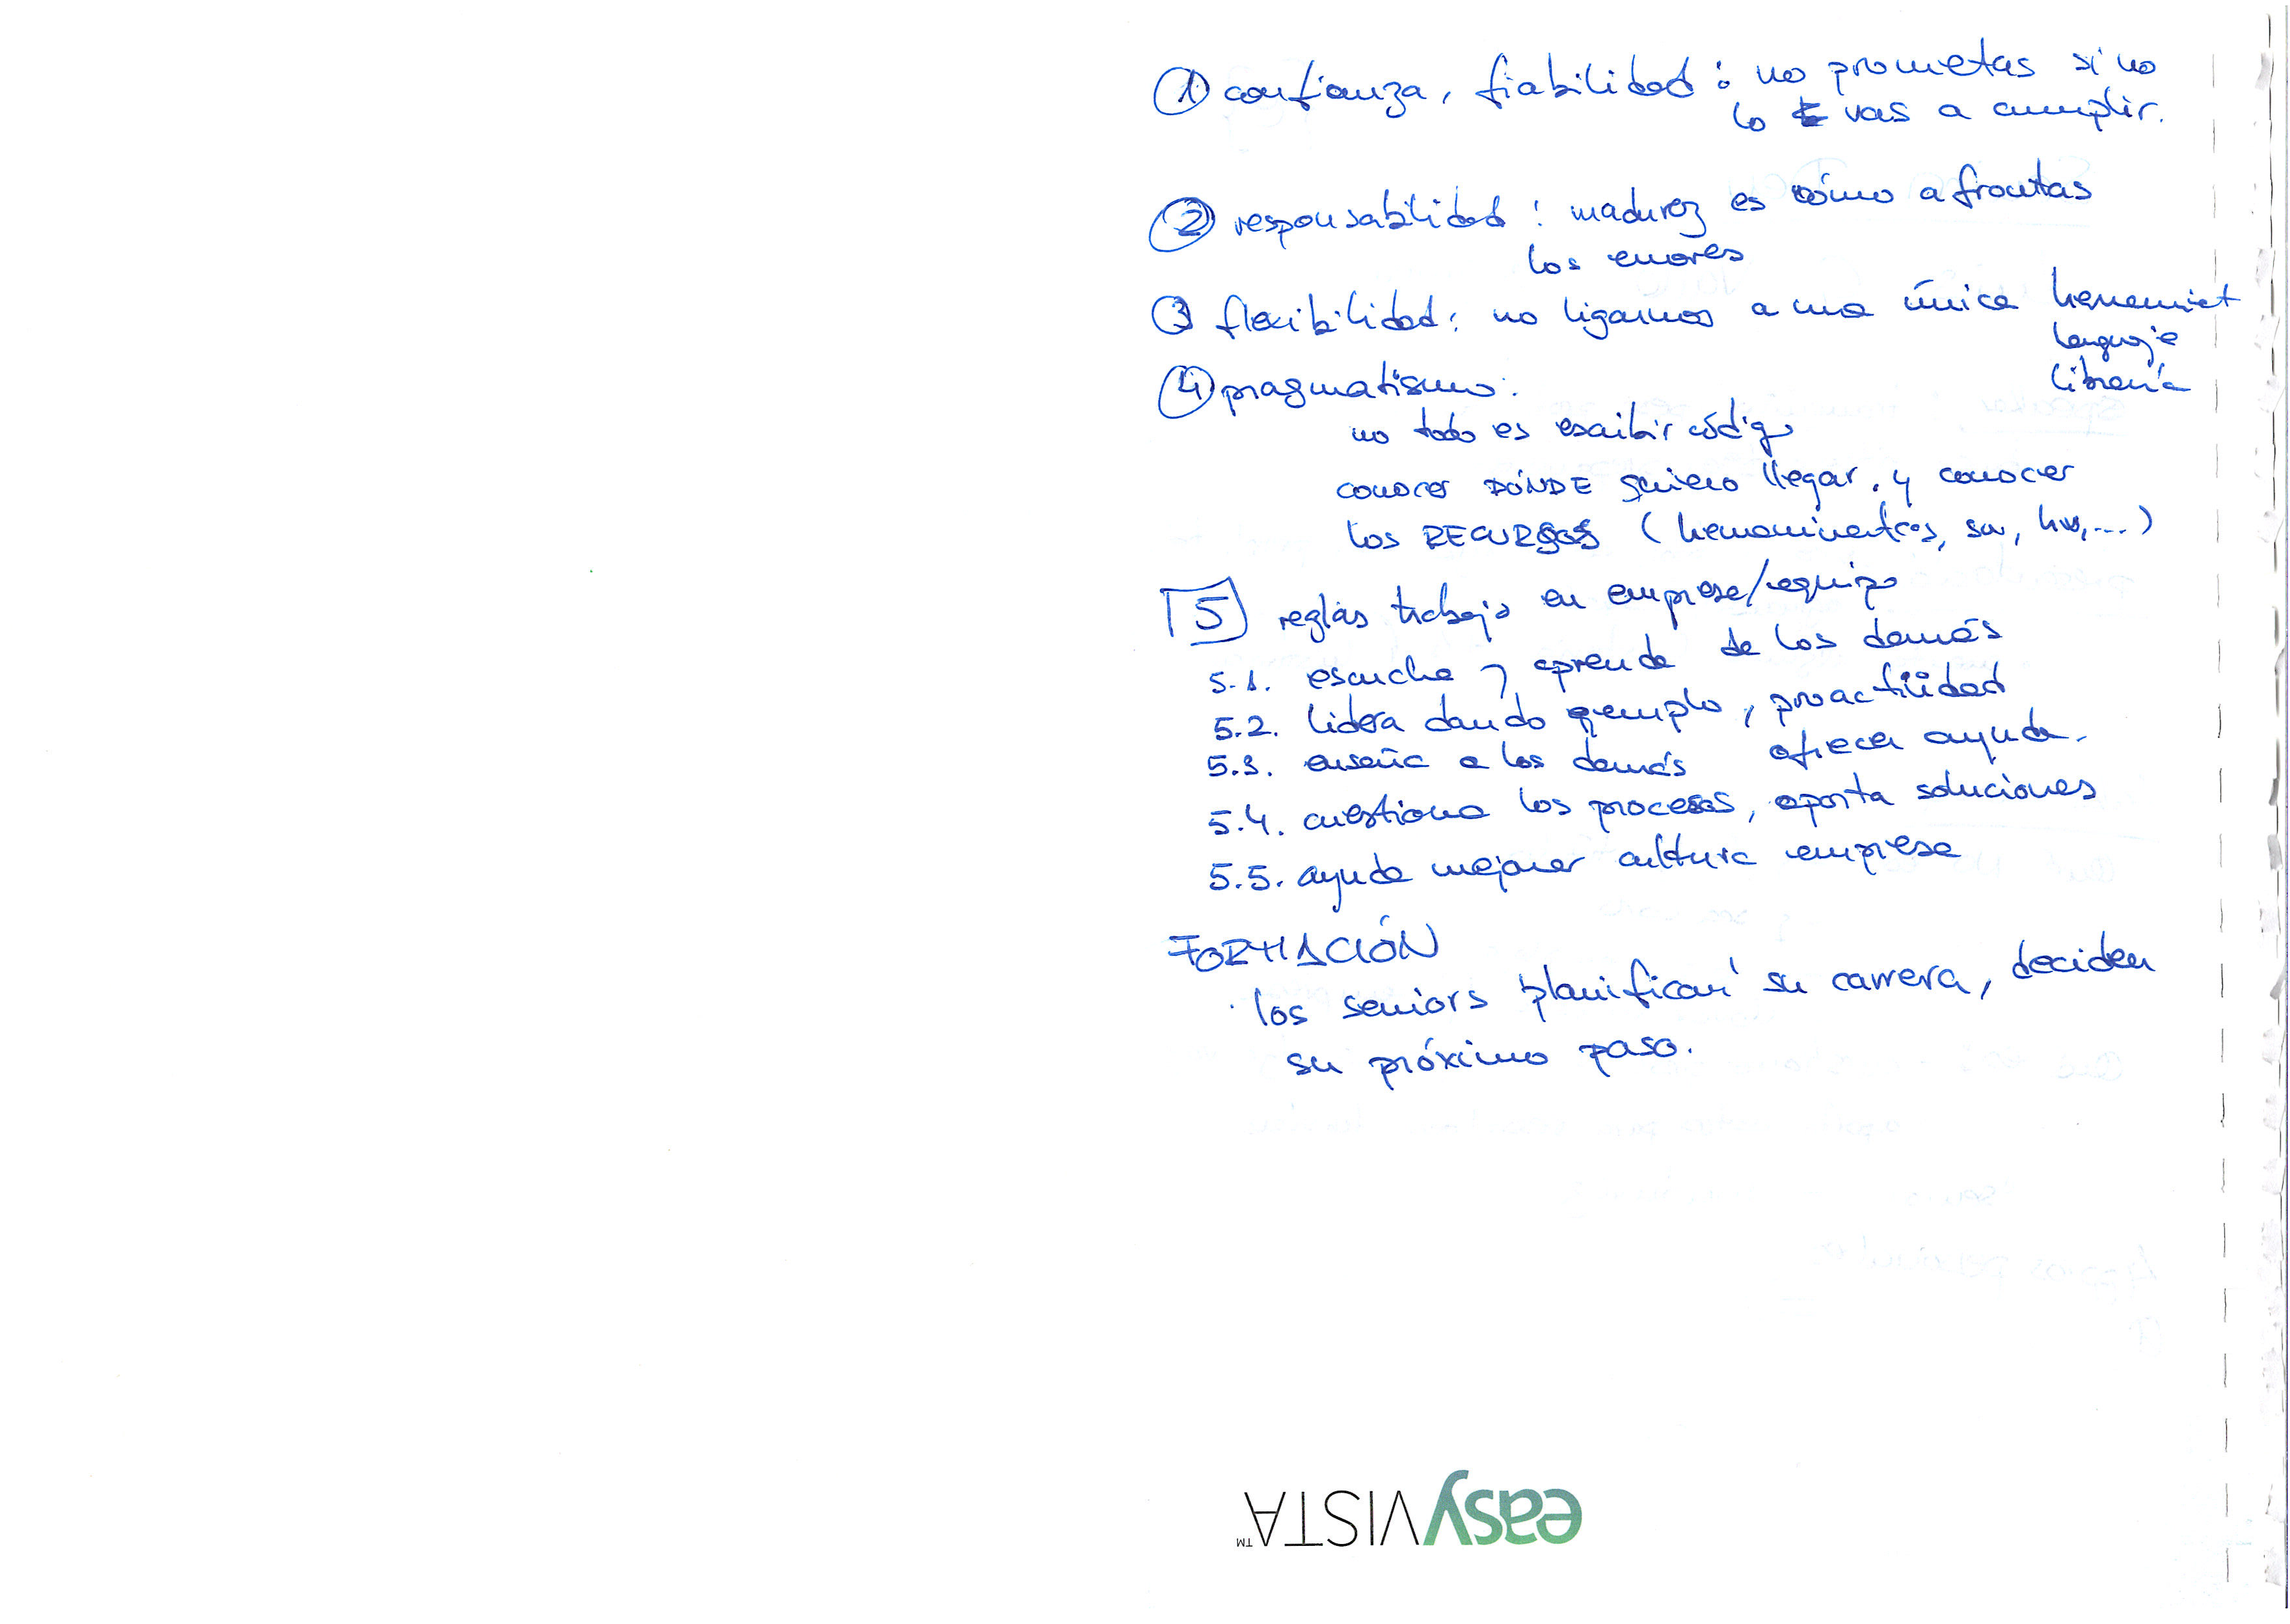 ① confianza, fiabilidad : no prometas si no
lo vas a cumplir.
② responsabilidad : madurez es cómo afrontas
los errores
③ flexibilidad : no ligarnos a una única herramient
lenguaje
librería
④ pragmatismo :
no todo es escribir código
conocer DÓNDE quiero llegar, y conocer
los RECURSOS (herramientas, sw, hw, ...)
5 reglas trabajo en empresa/equipo
5.1. escucha y aprende de los demás
5.2. lidera dando ejemplo, proactividad
5.3. enseña a los demás ofrecer ayuda.
5.4. cuestiona los procesos, aporta soluciones
5.5. ayuda mejorar cultura empresa
FORMACIÓN
· los seniors planifican su carrera, deciden
su próximo paso.
easyVISTA™